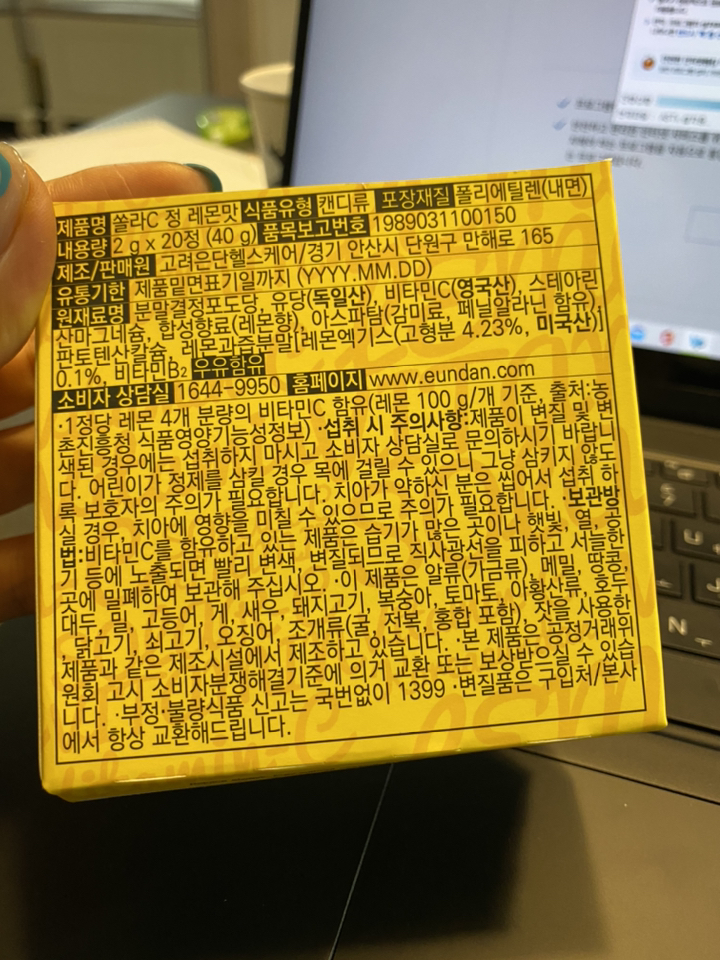 제품명 쏠라C 정 레몬맛 식품유형 캔디류 포장재질 폴리에틸렌(내면)
내용량 2 g x 20정 (40 g) 품목보고번호 1989031100150
제조/판매원 고려은단헬스케어/경기 안산시 단원구 만해로 165
유통기한 제품밑면표기일까지 (YYYY.MM.DD)
원재료명 분말결정포도당, 유당(독일산), 비타민C(영국산), 스테아린
산마그네슘, 합성향료(레몬향), 아스파탐(감미료, 페닐알라닌 함유),
판토텐산칼슘, 레몬과즙분말[레몬엑기스(고형분 4.23%, 미국산)]
0.1%, 비타민B₂ 우유함유
소비자 상담실 1644-9950 홈페이지 www.eundan.com
·1정당 레몬 4개 분량의 비타민C 함유(레몬 100 g/개 기준, 출처:농
촌진흥청 식품영양기능성정보) ·섭취 시 주의사항:제품이 변질 및 변
색된 경우에는 섭취하지 마시고 소비자 상담실로 문의하시기 바랍니
다. 어린이가 정제를 삼킬 경우 목에 걸릴 수 있으니 그냥 삼키지 않도
록 보호자의 주의가 필요합니다. 치아가 약하신 분은 씹어서 섭취 하
실 경우, 치아에 영향을 미칠 수 있으므로 주의가 필요합니다. ·보관방
법:비타민C를 함유하고 있는 제품은 습기가 많은 곳이나 햇빛, 열, 공
기 등에 노출되면 빨리 변색, 변질되므로 직사광선을 피하고 서늘한
곳에 밀폐하여 보관해 주십시오. ·이 제품은 알류(가금류), 메밀, 땅콩,
대두, 밀, 고등어, 게, 새우, 돼지고기, 복숭아, 토마토, 아황산류, 호두
, 닭고기, 쇠고기, 오징어, 조개류(굴, 전복, 홍합 포함), 잣을 사용한
제품과 같은 제조시설에서 제조하고 있습니다. ·본 제품은 공정거래위
원회 고시 소비자분쟁해결기준에 의거 교환 또는 보상받으실 수 있습
니다. ·부정·불량식품 신고는 국번없이 1399 ·변질품은 구입처/본사
에서 항상 교환해드립니다.